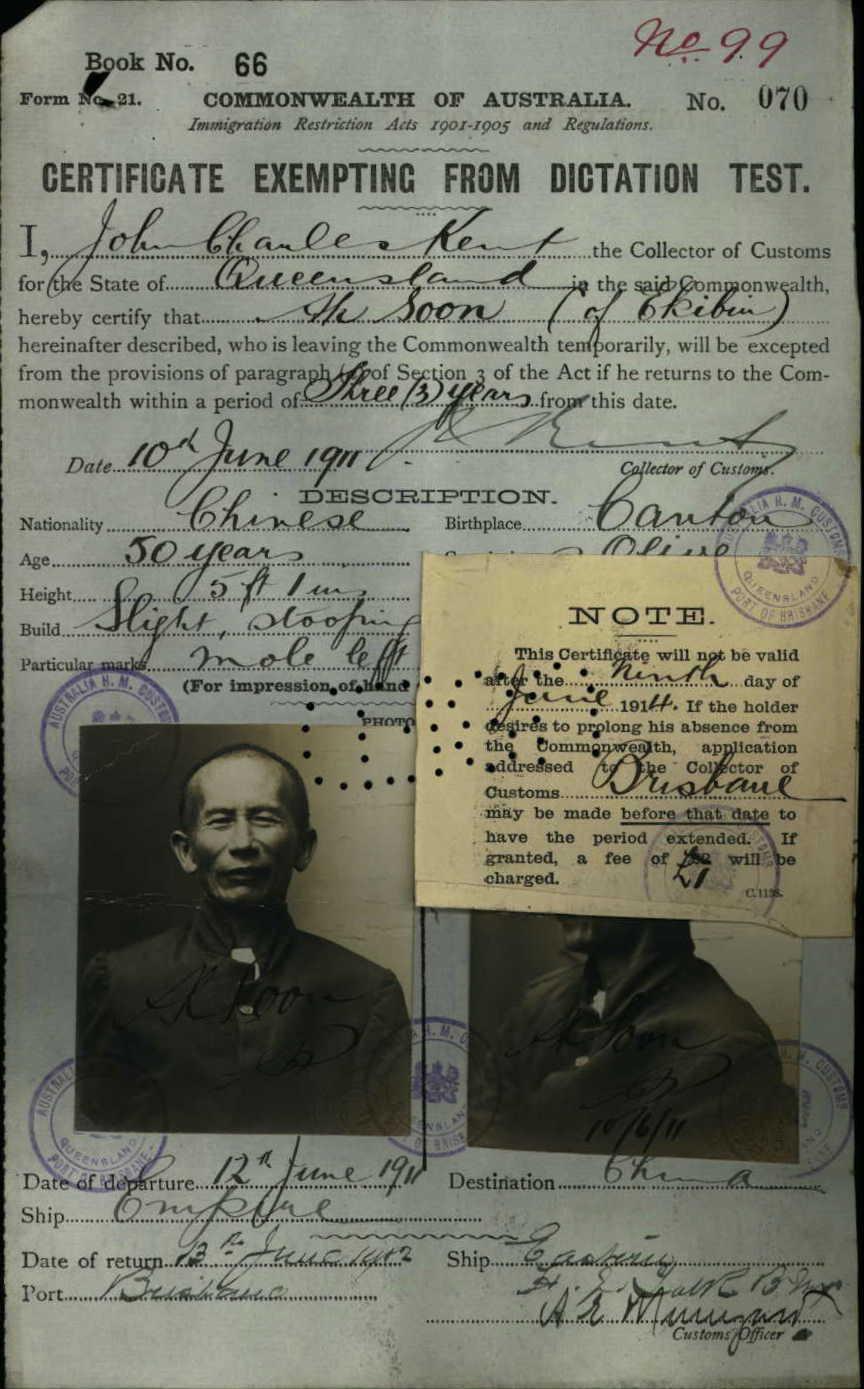 No 99
Book No. 66
Form No. 21. COMMONWEALTH OF AUSTRALIA. No. 070
Immigration Restriction Acts 1901-1905 and Regulations.
CERTIFICATE EXEMPTING FROM DICTATION TEST.
I, John Charles Kent the Collector of Customs
for the State of Queensland in the said Commonwealth,
hereby certify that Ah Soon (of Ekibin)
hereinafter described, who is leaving the Commonwealth temporarily, will be excepted
from the provisions of paragraph of Section 3 of the Act if he returns to the Com-
monwealth within a period of Three (3) years from this date.
Date 10th June 1911
Collector of Customs.
DESCRIPTION.
Nationality Chinese Birthplace Canton
Age 50 years Olive
Height 5 ft 1 in
Build Slight, stooping
Particular marks mole left
(For impression of hand
PHOTO
NOTE.
This Certificate will not be valid
after the Ninth day of
June 1914. If the holder
desires to prolong his absence from
the Commonwealth, application
addressed to the Collector of
Customs Brisbane
may be made before that date to
have the period extended. If
granted, a fee of £1 will be
charged.
C.1138.
AUSTRALIA H. M. CUSTOMS
QUEENSLAND
PORT OF BRISBANE
Ah Soon
Ah Soon
10/6/11
Date of departure 12th June 1911 Destination China
Ship Empire
Date of return 13th June 1912 Ship Eastern
Port Brisbane
Customs Officer